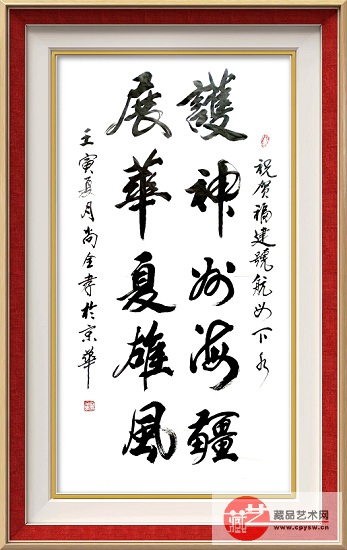 祝贺福建號航母下水
護神州海疆
展華夏雄風
壬寅夏月尚全孝於京華
藏品艺术网
www.cpysw.cn